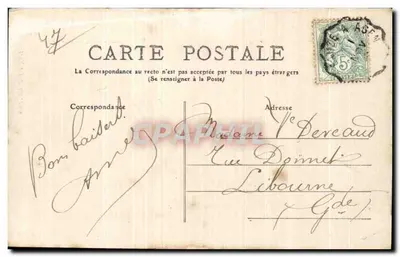 47
CARTE POSTALE
La Correspondance au recto n'est pas acceptée par tous les pays étrangers
(Se renseigner à la Poste)
Correspondance
Adresse
Bons baisers
Anne
Madame Vve Dercaud
Rue Donnet
Libourne
(Gde)
A AGEN
5c
CPAPHIL.com